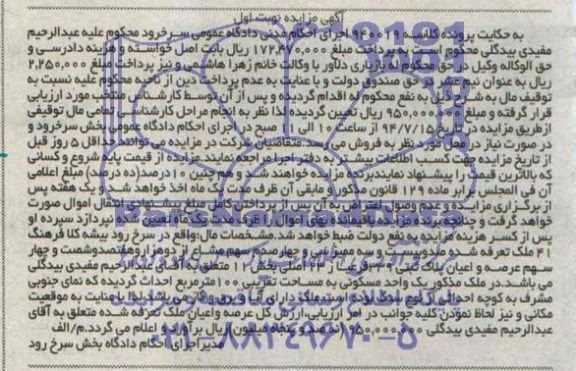 آگهی مزایده نوبت اول
به حکایت پرونده کلاسه 940019 اجرای احکام مدنی دادگاه عمومی سرخرود محکوم علیه عبدالرحیم
مفیدی بیدگلی محکوم است به پرداخت مبلغ 172,400,000 ریال بابت اصل خواسته و هزینه دادرسی و
حق الوکاله وکیل در حق محکوم له بازیاری دلاور با وکالت خانم زهرا هاشمی و نیز پرداخت مبلغ 2,250,000
ریال به عنوان نیم عشر در حق صندوق دولت و با عنایت به عدم پرداخت دین از ناحیه محکوم علیه نسبت به
توقیف مال به شرح ذیل به نفع محکوم له اقدام گردیده و پس از آن توسط کارشناس منتخب مورد ارزیابی
قرار گرفته و مبلغ 950,000,000 ریال تعیین گردیده لذا نظر به انجام مراحل کارشناسی تمامی مال توقیفی
ازطریق مزایده در تاریخ 94/7/15 از ساعت 10 الی 11 صبح در اجرای احکام دادگاه عمومی بخش سرخرود و
در صورت نیاز در محل مورد نظر به فروش می رسد. متقاضیان شرکت در مزایده می توانند حداقل 5 روز قبل
از تاریخ مزایده جهت کسب اطلاعات بیشتر به دفتر اجرا مراجعه نمایند. مزایده از قیمت پایه شروع و کسانی
که بالاترین قیمت را پیشنهاد نمایند برنده مزایده خواهند شد و هم چنین 10 درصد (ده درصد) مبلغ اعلامی
آن فی المجلس برابر ماده 129 قانون مذکور و مابقی آن ظرف مدت یک ماه اخذ خواهد شد و یک هفته پس
از برگزاری مزایده و عدم وصول اعتراض به آن پس از پرداختن کامل مبلغ پیشنهادی انتقال اموال صورت
خواهد گرفت و چنانچه برنده مزایده باقیمانده بهای اموال را ظرف مدت یک ماه تعیین شده نپردازد سپرده او
پس از کسر هزینه مزایده به نفع دولت ضبط خواهد شد. مشخصات مال: واقع در سرخ رود بیشه کلا فرهنگ
41 ملک تعرفه شده
سهم عرصه و اعیان پلاک ثبتی اصلی بخش 11 متعلق به آقای عبدالرحیم مفیدی بیدگلی
می باشد. در ملک مذکور یک واحد مسکونی به مساحت تقریبی 100 مترمربع احداث گردیده که نمای جنوبی
مشرف به کوچه احداثی از نوع
مکانی و نیز لحاظ نمودن کلیه جوانب در امر ارزیابی، ارزش کل عرصه واعیان ملک تعرفه شده متعلق به آقای
عبدالرحیم مفیدی بیدگلی 950,000,000 نهصد و پنجاه میلیون ریال برآورد و اعلام می گردد. م/الف
مدیراجرای احکام دادگاه بخش سرخ رود
021-88349670-5